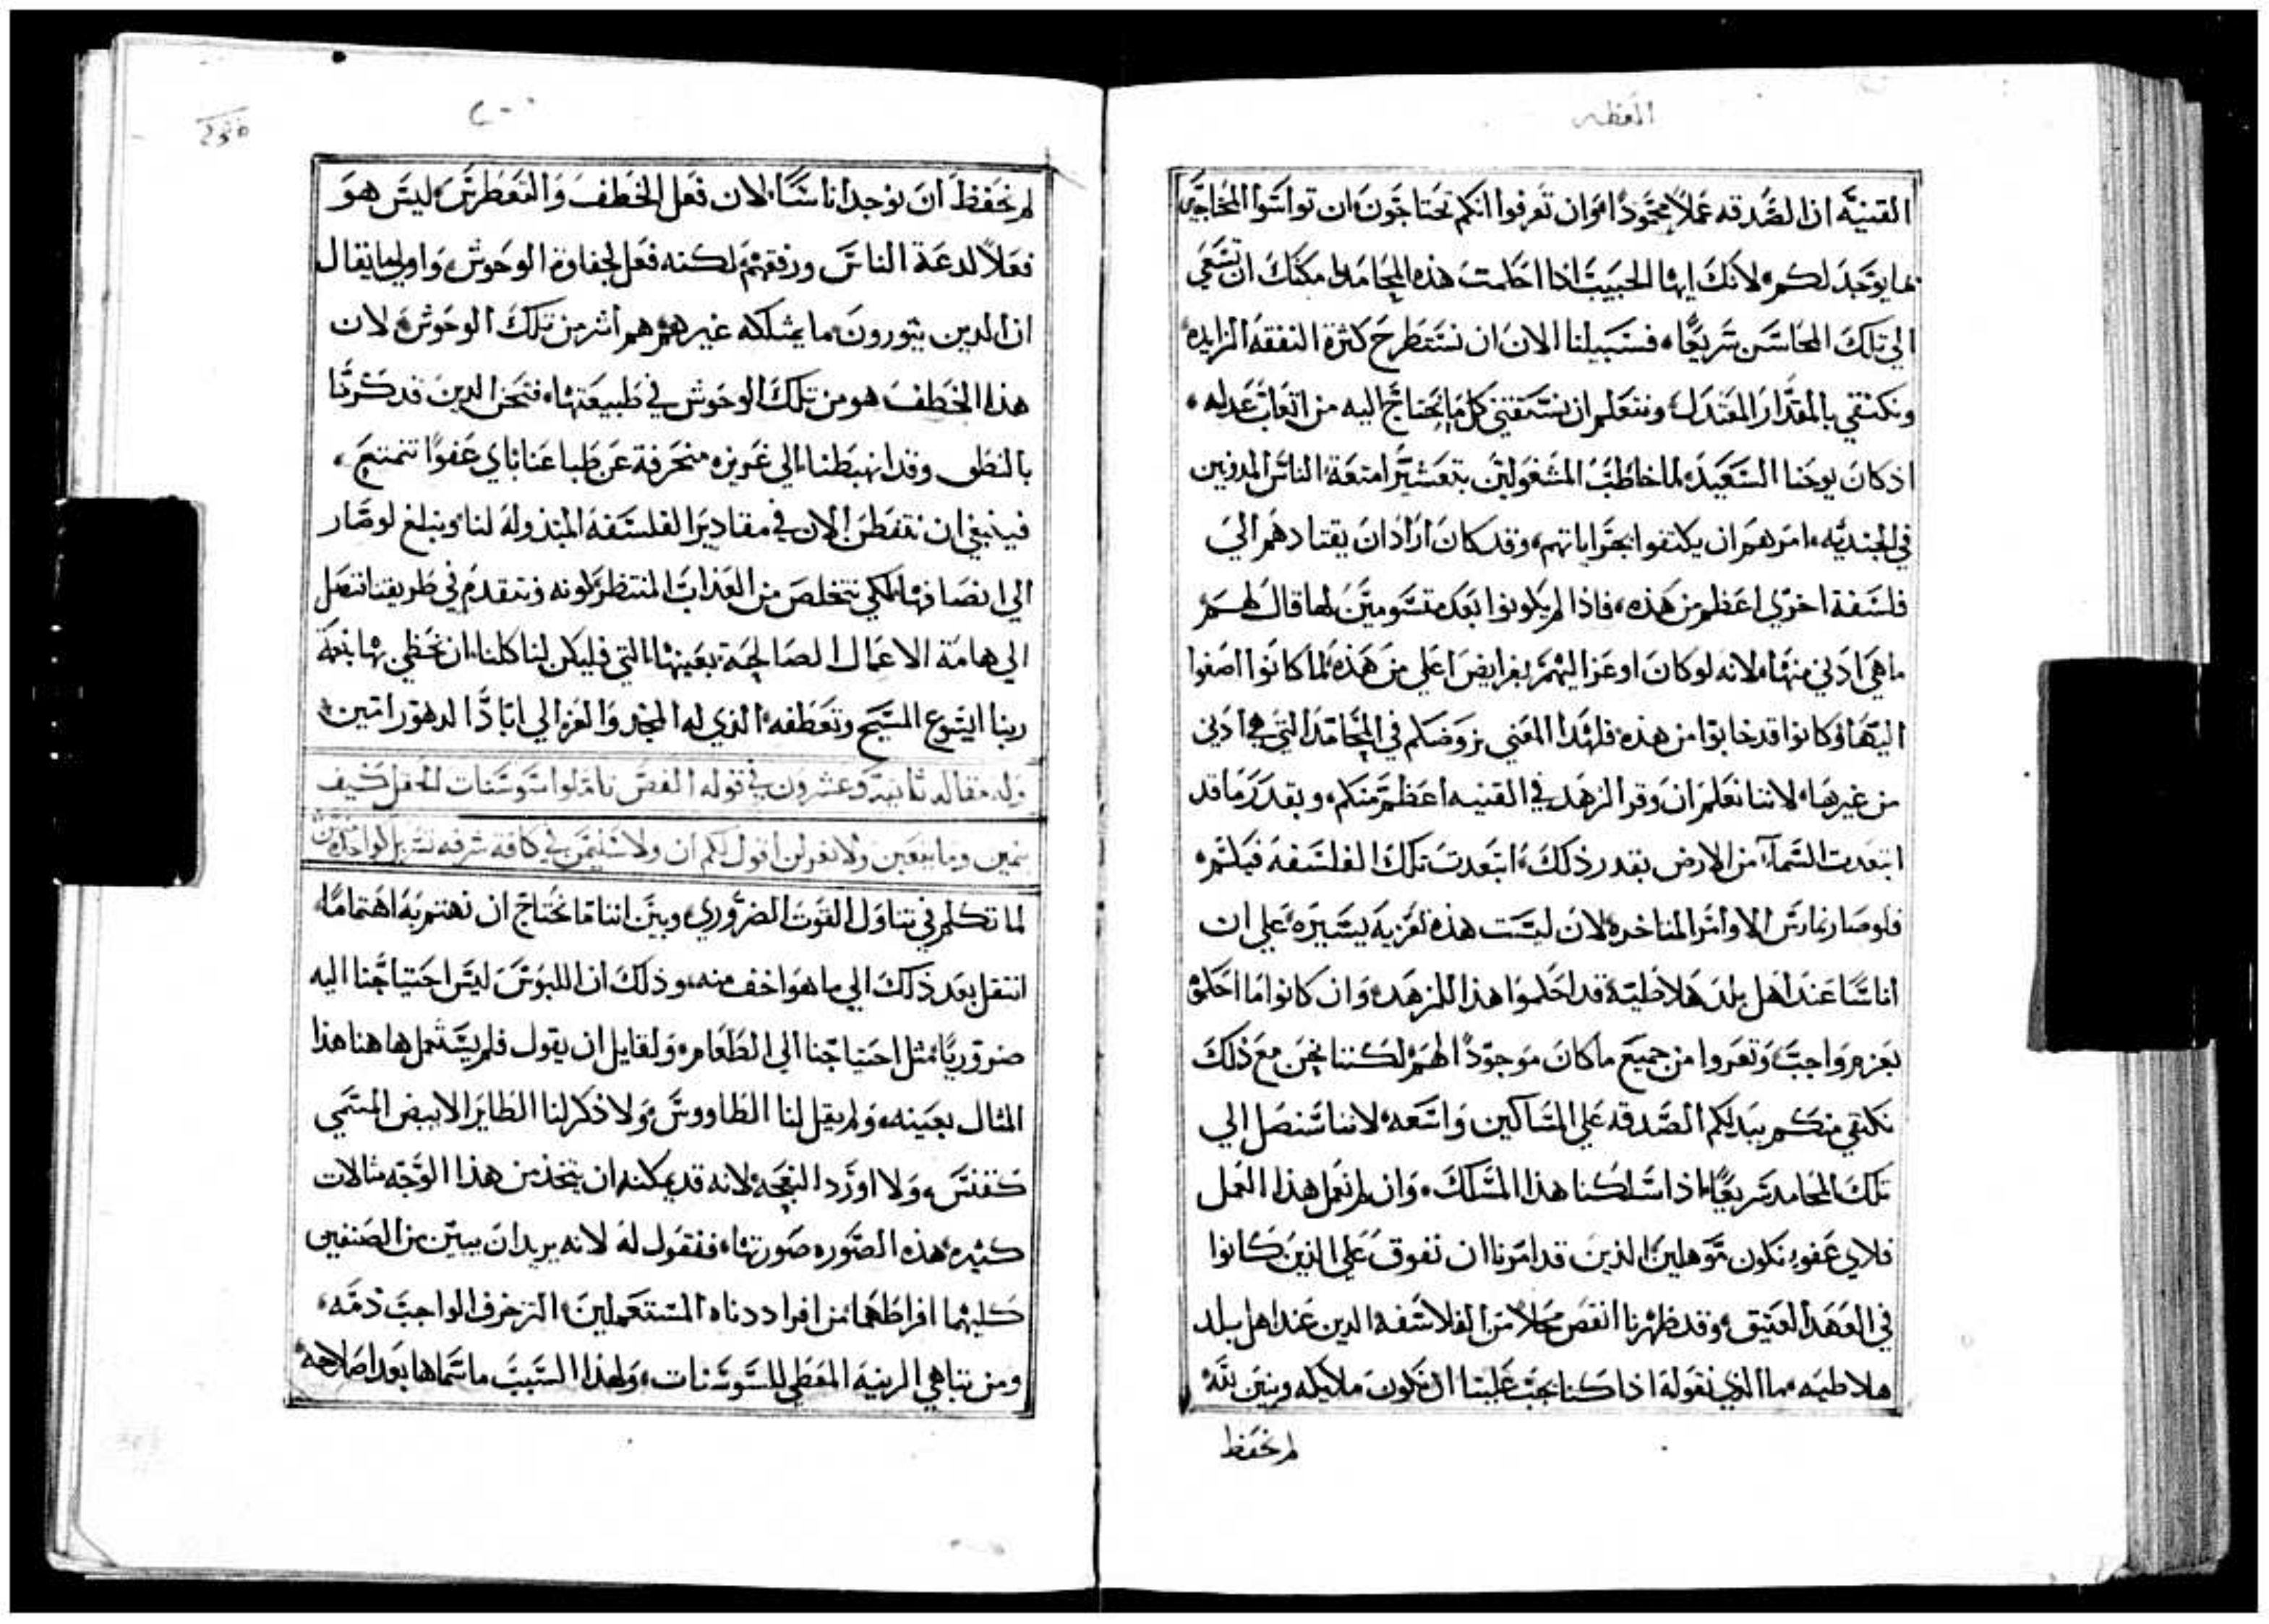 العظه
القنيه ان الصدقه عملاً محموداً وان تعرفوا انكم تحتاجون ان تواسوا المحتاجين
بما يوجد لكم لانك ايها الحبيب اذا احكمت هذه المحامد امكنك ان تسعي
الي تلك المحاسن سريعًا فسبيلنا الان ان نستطرح كثرة النفقه الزايده
ونكتفي بالمقدار المعتدل ونتعلم ان نستقتني كل ما نحتاج اليه من اتعاب عدله
اذ كان يوحنا السعيد لما خاطب المشغولين بتعشير امتعة الناس المدونين
في الجنديه امرهم ان يكتفوا بجراياتهم وقد كان اراد ان يقتادهم الي
فلسفة اخري اعظم من هذه فاذا لم يكونوا بعد متسومين لها قال لهم
ما هي ادني منها لانه لو كان اوعز اليهم بفرايض اعلي من هذه لما كانوا اصغوا
اليها وكانوا قد خابوا من هذه فلهذا المعني نروضكم في المحامد التي هي ادني
من غيرها لاننا نعلم ان وقر الزهد في القنيه اعظم منكم وبقدر ما قد
ابتعدت السماء من الارض بقدر ذلك ابتعدت تلك الفلسفه
فلو صار نمارس الاوامر المتاخره لان ليست هذه تعزيه يسيره علي ان
اناسًا عند اهل بلد هلاطية قد احكموا هذا الزهد وان كانوا ما احكموه
بعزم واجب وتعروا من جميع ما كان موجوداً لهم لكننا نحن مع ذلك
نكتفي منكم ببدلكم الصدقه علي المساكين واسعه لاننا سنصل الي
تلك المحامد سريعًا اذا سلكنا هذا المسلك وان لم نعمل هذا العمل
فلاي عفو نكون موهلين الذين قد امرنا ان نفوق علي الذين كانوا
في العهد العتيق وقد ظهرنا انقص حالاً من الفلاسفه الدين عند اهل بلد
هلاطيه ما الذي نقوله اذا كنا يجب علينا ان نكون ملايكه وبنين لله
لم نحفظ
لم نحفظ ان نوجد اناسًا لان فعل الخطف والتغطرس ليس هو
فعلاً لدعة الناس ورفقهم لكنه فعل لجفاوة الوحوش واولي ما يقال
ان الدين يثورون ما يمتلكه غيرهم هم اشر من تلك الوحوش لان
هذا الخطف هو من تلك الوحوش في طبيعتها فنحن الدين قد كرمنا
بالنطق وقد انهبطنا الي غريزه منحرفة عن طباعنا باي عفوًا نتمتع
فينبغي ان نتفطن الان في مقادير الفلسفة المبذوله لنا ونبلغ لو صار
الي انصافها لكي نتخلص من العذاب المنتظر كونه ونتقدم في طريقنا فنصل
الي هامة الاعمال الصالحة بعينها التي فليكن لنا كلنا ان نحظي بها بنعمة
ربنا ايسوع المسيح وتعطفه الذي له المجد والعز الي اباد الدهور امين
وله مقاله ثانية وعشرون في قوله الفص تاملوا سوسنات الحقل كيف
ينمين وما يتعبن ولا يغزلن اقول لكم ان ولا سليمن في كافة شرفه تسربل كواحده من
لما تكلم في تناول القوت الضروري وبين اننا ما نحتاج ان نهتم به اهتمامًا
انتقل بعد ذلك الي ما هو اخف منه وذلك ان اللبوس ليس احتياجنا اليه
ضروريًا مثل احتياجنا الي الطعام ولقايل ان يقول فلم يستمل هاهنا هذا
المثال بعينه ولم يقل لنا الطاووس ولا ذكر لنا الطاير الابيض المسمي
ققنس ولا اورد النعجه لانه قد يمكنه ان يتخذ من هذا الوجه مثالات
كثيره هذه الصوره صورتها فنقول له لانه يريد ان يبين من الصنفين
كليهما افراطهما من افراد دناه المستعملين التزخرف الواجب ذمه
ومن تباهي الزينه المعطي للسوسنات ولهذا السبب ما سماها بعد اصلاحه